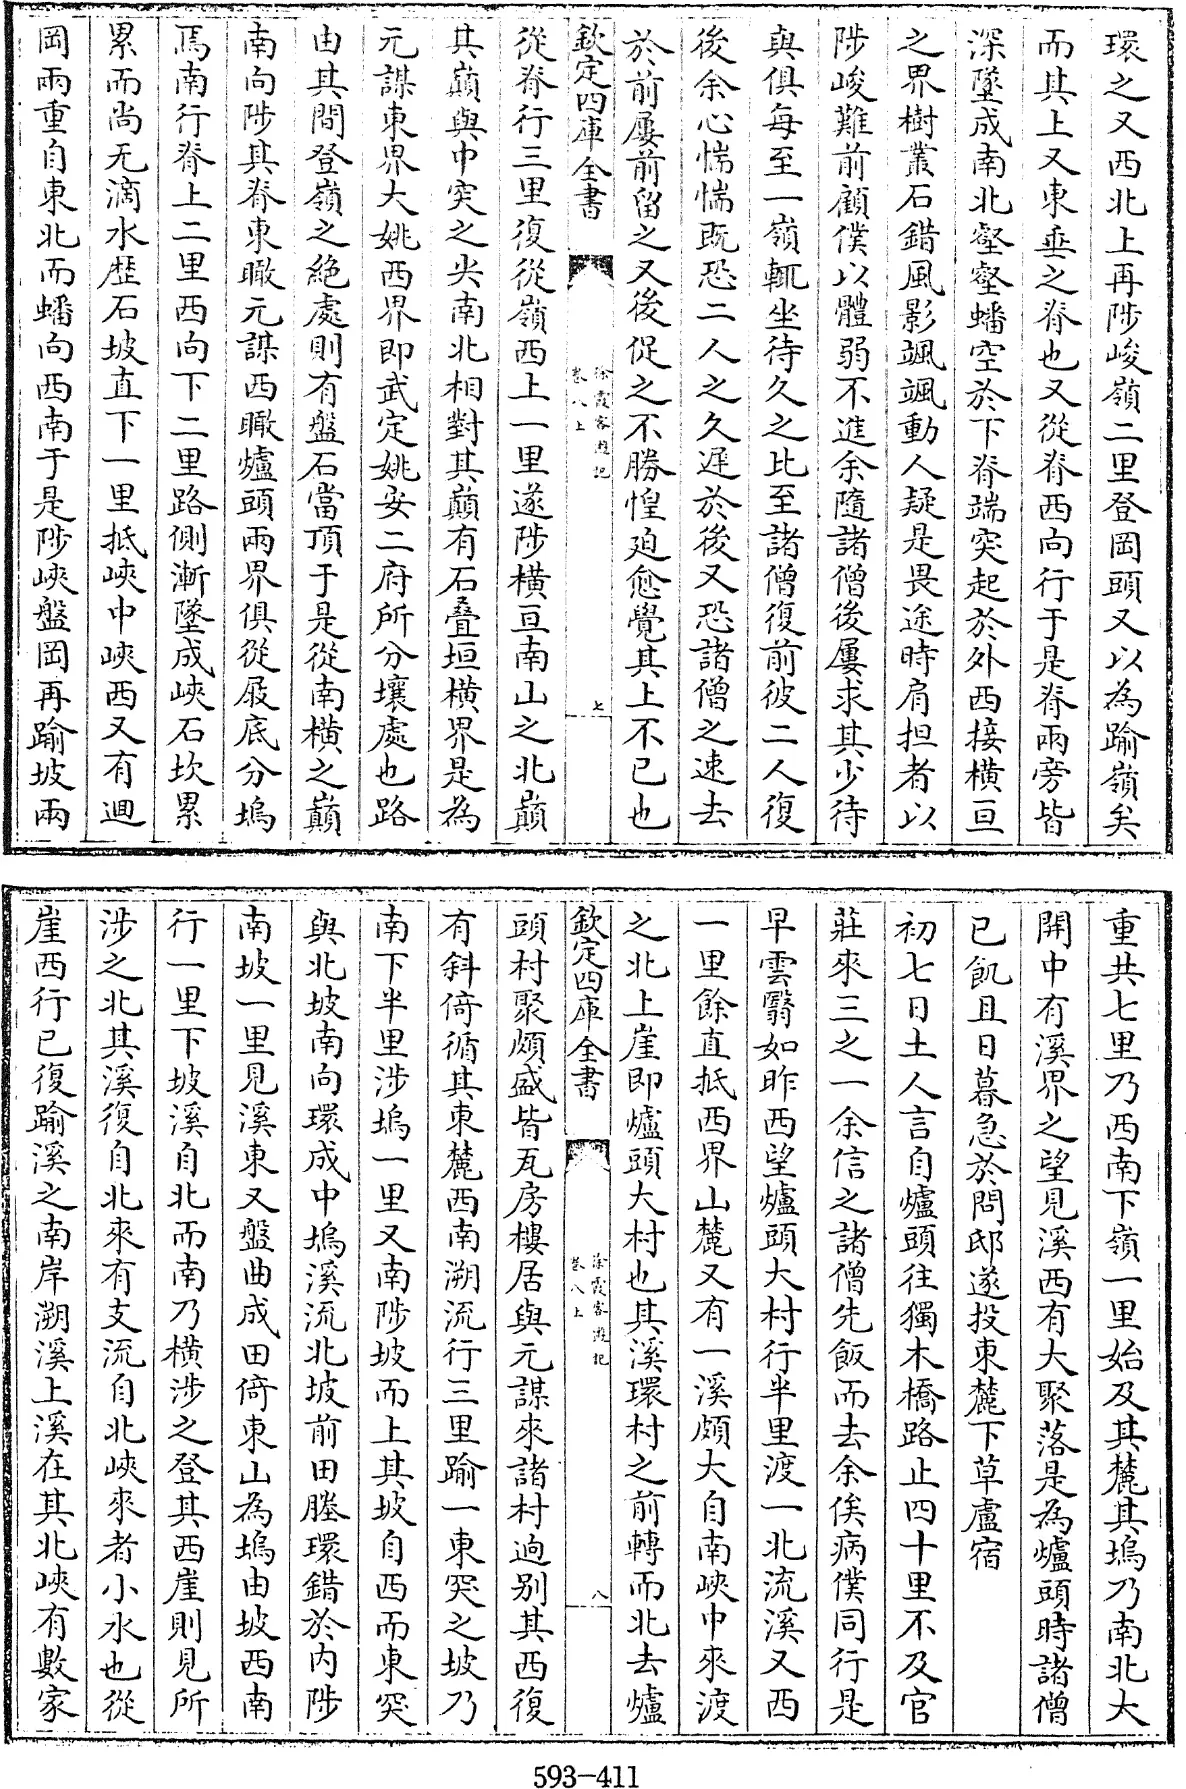 環之又西北上再陟峻嶺二里登岡頭又以為踰嶺矣
而其上又東垂之脊也又從脊西向行于是脊兩旁皆
深墜成南北壑壑蟠空於下脊端突起於外西接橫亘
之界樹叢石錯風影颯颯動人疑是畏途時肩担者以
陟峻難前顧僕以體弱不進余隨諸僧後屢求其少待
與俱每至一嶺輒坐待久之比至諸僧復前彼二人復
後余心惴惴既恐二人之久遲於後又恐諸僧之速去
於前屢前留之又後促之不勝惶迫愈覺其上不已也
欽定四庫全書
徐霞客遊記
卷八上
七
從脊行三里復從嶺西上一里遂陟橫亘南山之北巔
其巔與中突之尖南北相對其巔有石疊垣橫界是為
元謀東界大姚西界即武定姚安二府所分壤處也路
由其間登嶺之絶處則有盤石當頂于是從南橫之巔
南向陟其脊東瞰元謀西瞰爐頭兩界俱從屐底分塢
焉南行脊上二里西向下二里路側漸墜成峽石坎累
累而尚无滴水歷石坡直下一里抵峽中峽西又有迴
岡兩重自東北而蟠向西南于是陟峽盤岡再踰坡兩
重共七里乃西南下嶺一里始及其麓其塢乃南北大
開中有溪界之望見溪西有大聚落是為爐頭時諸僧
已飢且日暮急於問邸遂投東麓下草廬宿
初七日土人言自爐頭往獨木橋路止四十里不及官
莊來三之一余信之諸僧先飯而去余俟病僕同行是
早雲翳如昨西望爐頭大村行半里渡一北流溪又西
一里餘直抵西界山麓又有一溪頗大自南峽中來渡
之北上崖即爐頭大村也其溪環村之前轉而北去爐
欽定四庫全書
徐霞客遊記
卷八上
八
頭村聚頗盛皆瓦房樓居與元謀來諸村逈别其西復
有斜倚循其東麓西南溯流行三里踰一東突之坡乃
南下半里涉塢一里又南陟坡而上其坡自西而東突
與北坡南向環成中塢溪流北坡前田塍環錯於内陟
南坡一里見溪東又盤曲成田倚東山為塢由坡西南
行一里下坡溪自北而南乃橫涉之登其西崖則見所
涉之北其溪復自北來有支流自北峽來者小水也從
崖西行已復踰溪之南岸溯溪上溪在其北峽有數家
593-411